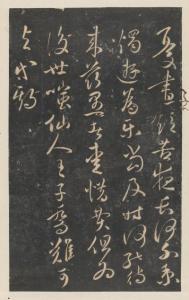 憂晝短苦夜長何不秉
燭遊為樂當及時何能待
來茲愚者愛惜費但為
後世嗤仙人王子喬難可
與等期